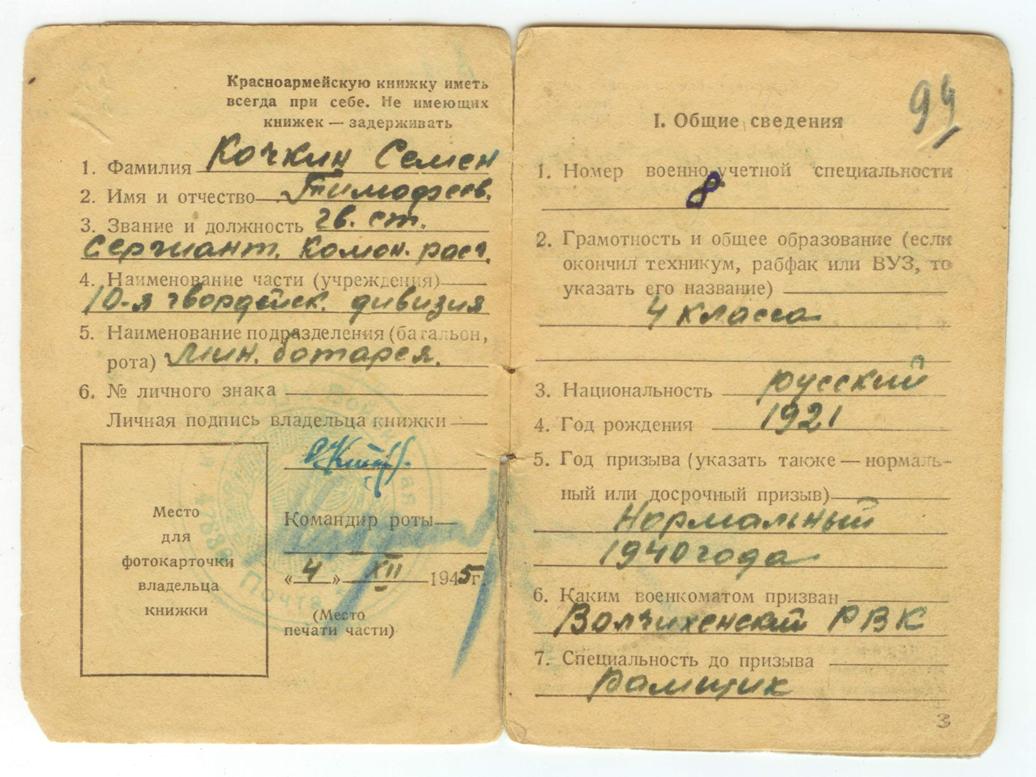 Красноармейскую книжку иметь
всегда при себе. Не имеющих
книжек — задерживать
1. Фамилия Кочкин Семен
2. Имя и отчество Тимофеев.
3. Звание и должность гв. ст.
Сержиант. Комон. расч.
4. Наименование части (учреждения)
10-я гвордейск. дивизия
5. Наименование подразделения (батальон,
рота) Мин. ботарея.
6. № личного знака
Личная подпись владельца книжки
Место
для
фотокарточки
владельца
книжки
Командир роты
«4» XII 1945г.
(Место
печати части)
Почта
99
I. Общие сведения
1. Номер военно-учетной специальности
8
2. Грамотность и общее образование (если
окончил техникум, рабфак или ВУЗ, то
указать его название)
4 класса
3. Национальность русский
4. Год рождения 1921
5. Год призыва (указать также — нормаль-
ный или досрочный призыв)
Нормальный
1940 года
6. Каким военкоматом призван
Волчихенский РВК
7. Специальность до призыва
рамщик
3